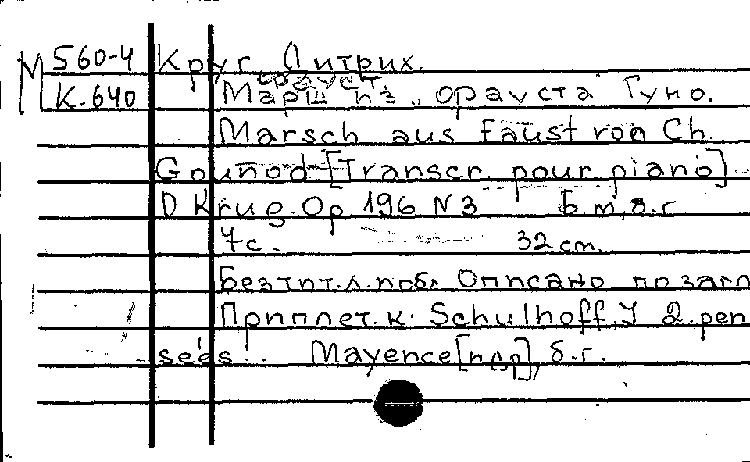 М 560-4 Круг, Дитрих.
К. 640 Марш из „Фауста Гуно.
Marsch aus Faust von Ch.
Gounod [Transcr. pour piano]
D Krug. Op 196 N 3 б.м., б.г.
7 с. 32 cm.
Без тит. л. и обл. Описано по загл
Приплет. к: Schulhoff, J 2 pen
sées. Mayence [и др], б.г.